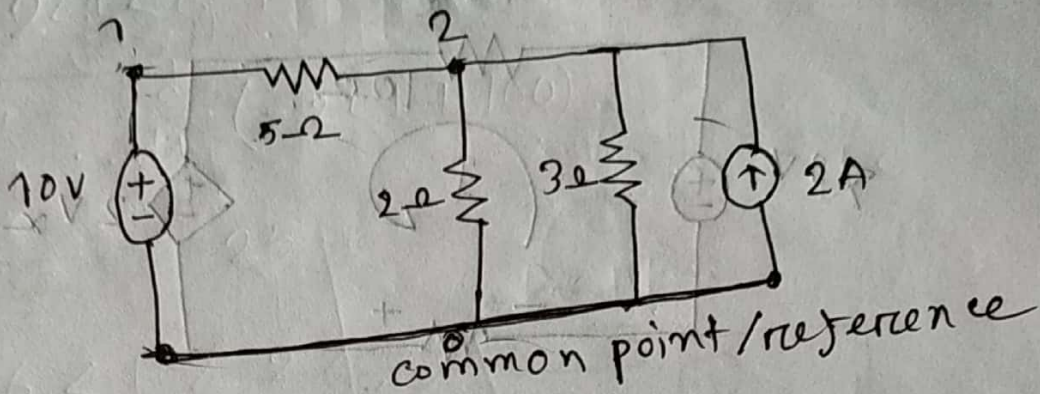 1 2
5Ω
10V + - 2Ω 3Ω ↑ 2A
0
common point/reference